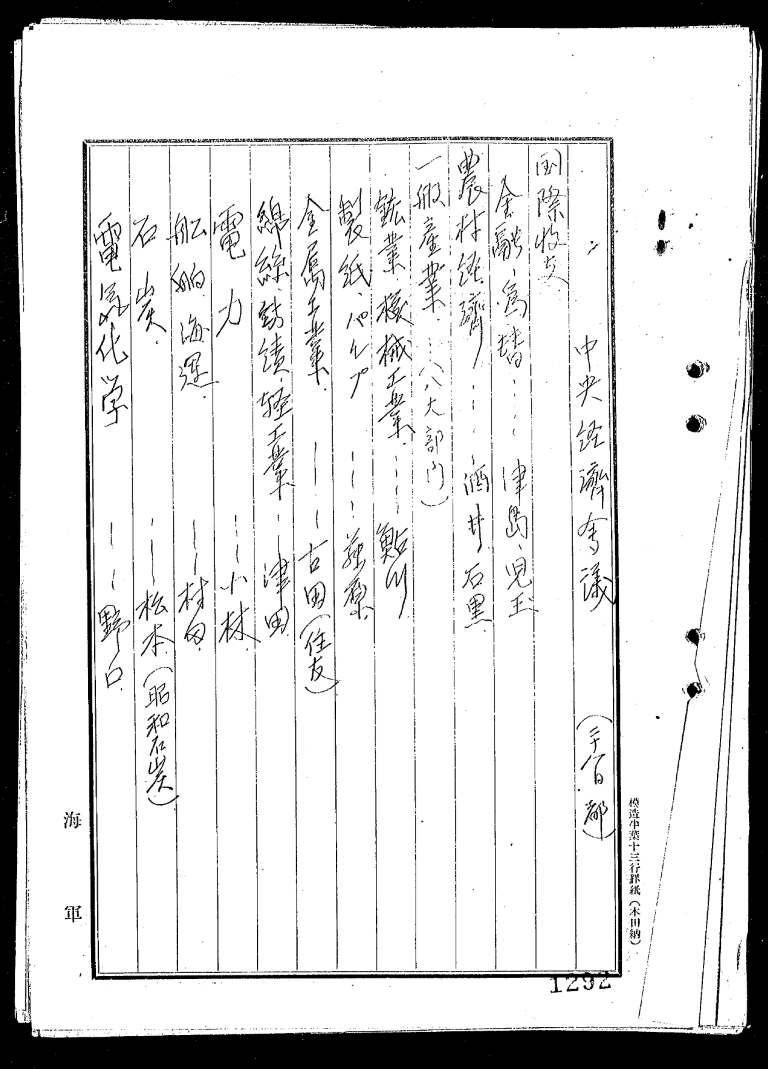 中央経済会議
国際收支
金融、為替……津島、児玉
農村経済……酒井 石黒
一般産業……(八大部門)
鉱業 機械工業……鮎川
製紙、パルプ……藤原
金属工業……古田(住友)
綿絲紡績、軽工業……津田
電力……小林
船舶 海運……村田
石炭……松本(昭和石炭)
電気化学……野口
海軍
模造半葉十三行罫紙(木田納)
1292